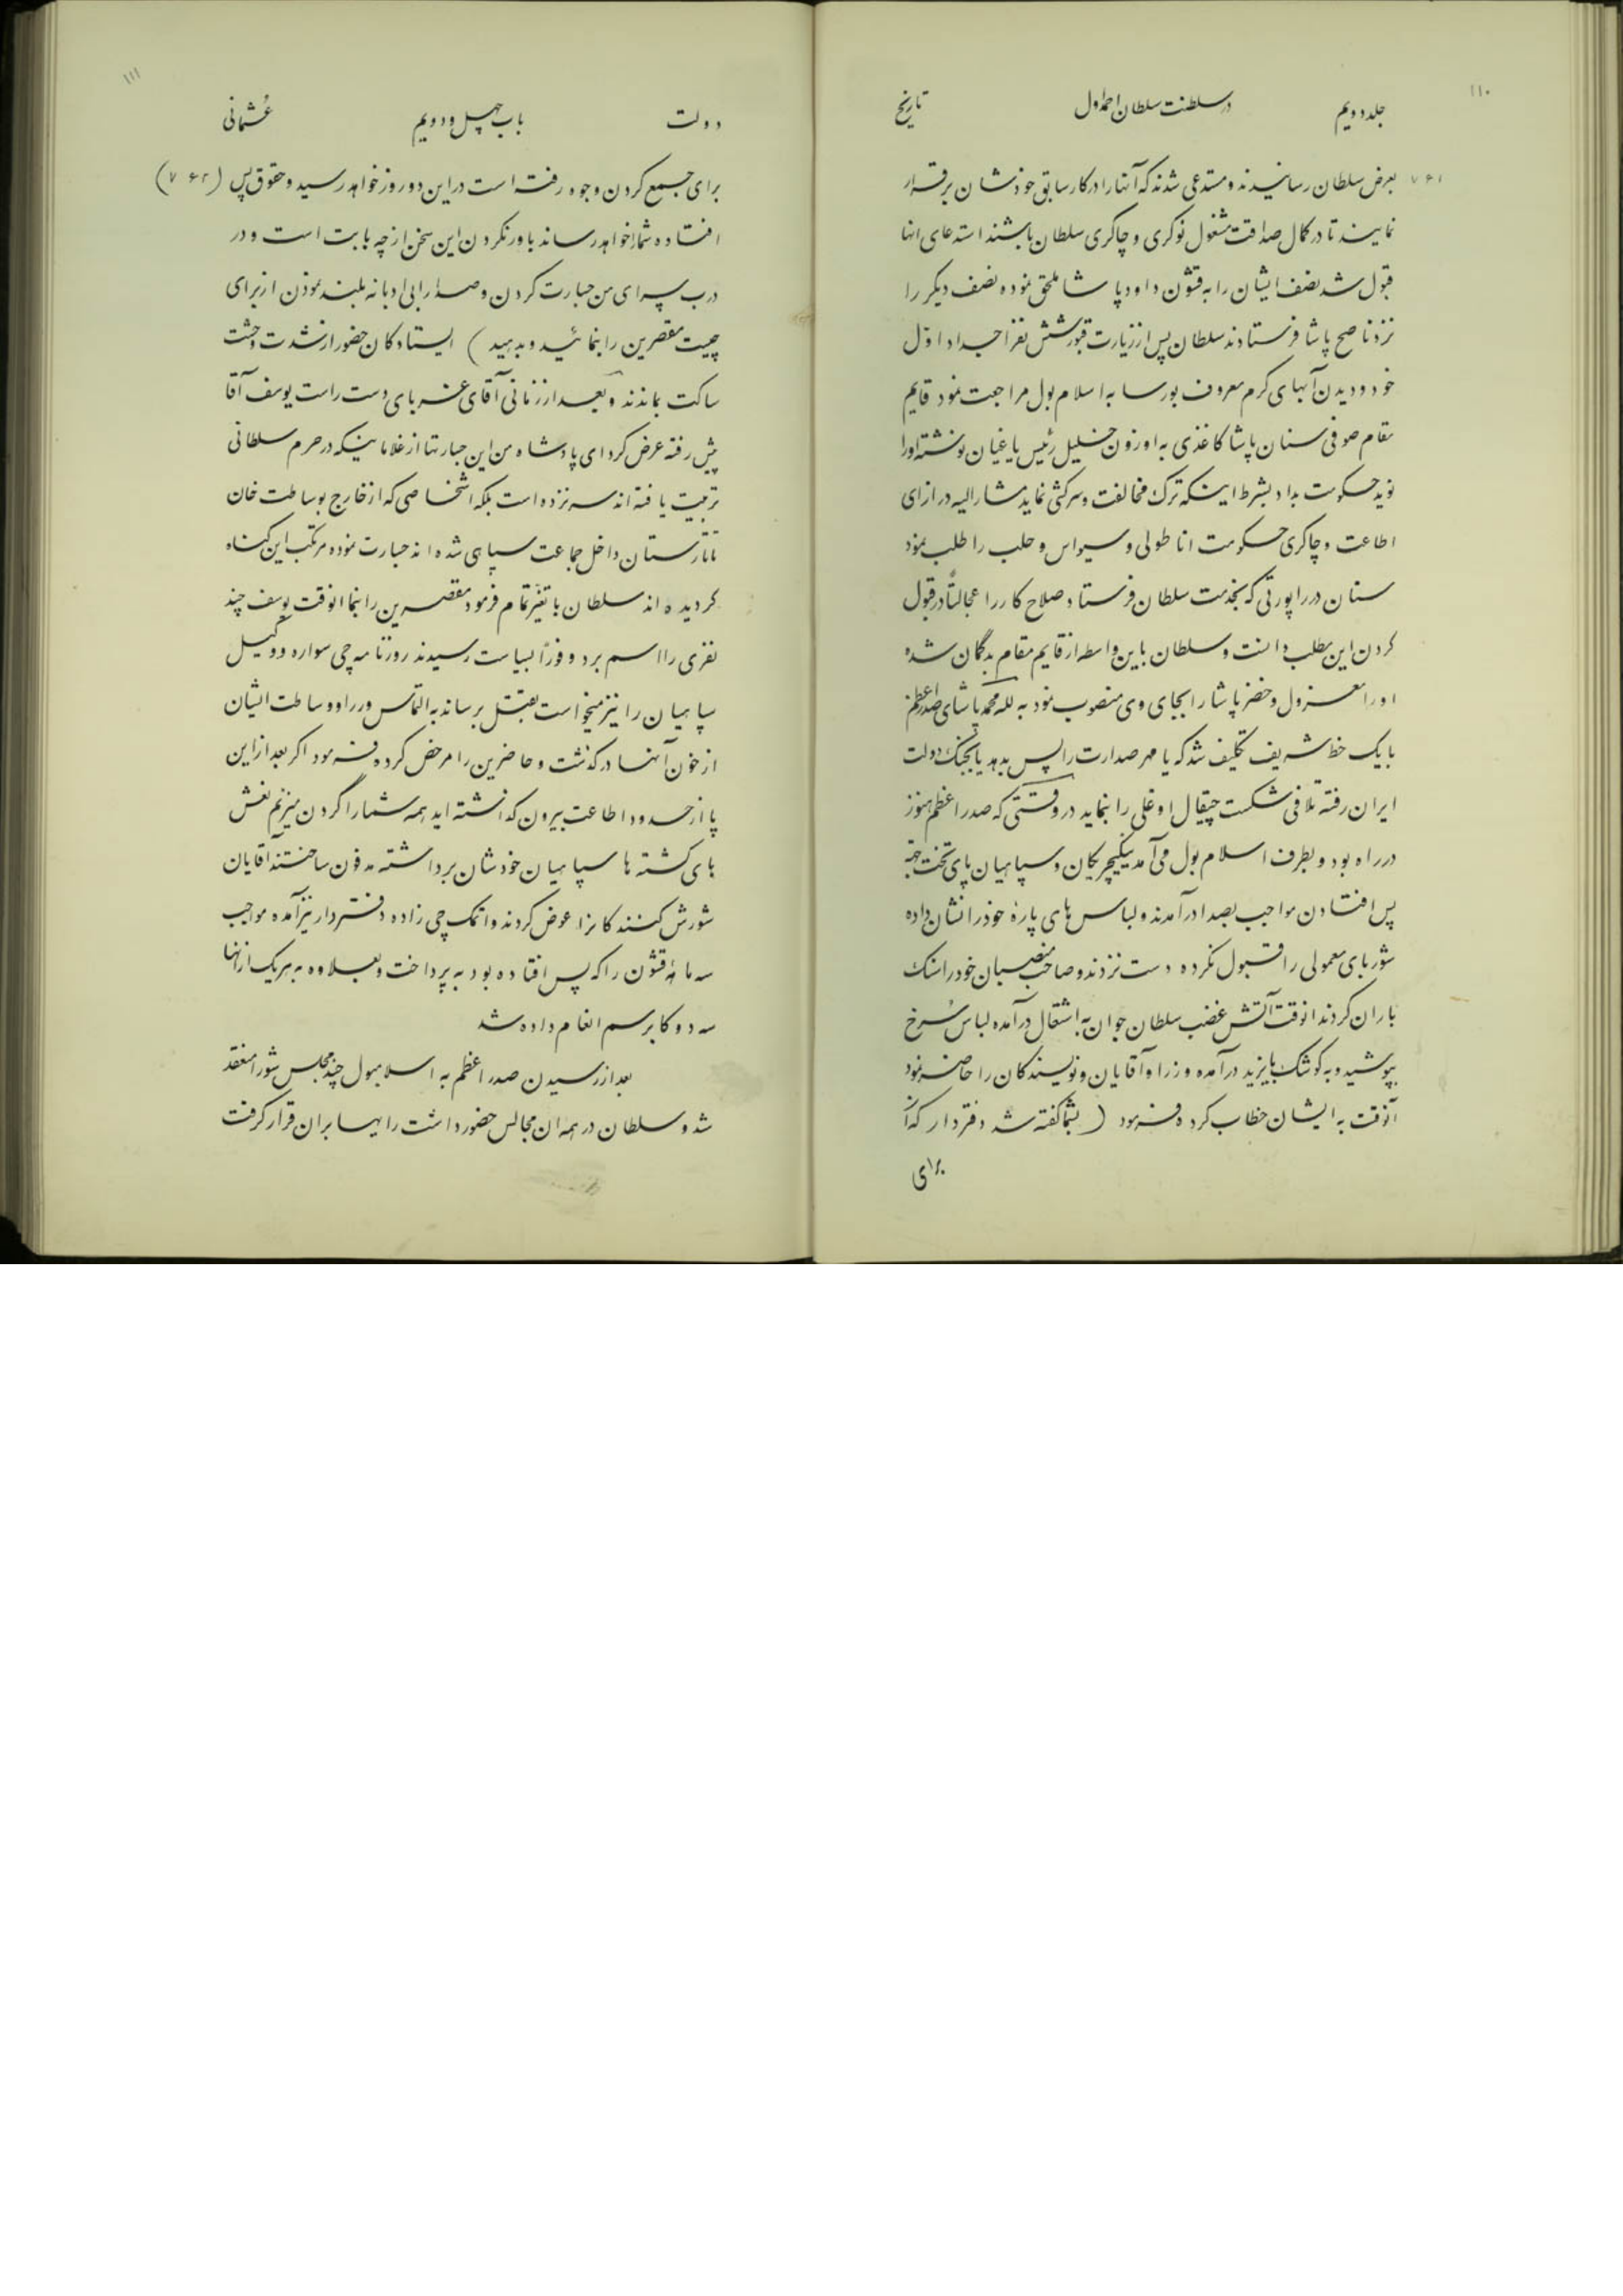 ۱۱۰
جلد دویم در سلطنت سلطان احمد اول تاریخ
۷۶۱
بعرض سلطان رسانیدند و مستدعی شدند که آنها را در کار سابق خودشان برقرار
نمایند تا در کمال صداقت مشغول نوکری و چاکری سلطان باشند استدعای انها
قبول شد نصف ایشان را به قشون داود پاشا ملحق نموده نصف دیگر را
نزد ناصح پاشا فرستادند سلطان پس از زیارت قبور شش نفر اجداد اوّل
خود و دیدن آبهای گرم معروف بورسا به اسلامبول مراجعت نمود قایم
مقام صوفی سنان پاشا کاغذی به اوزون خلیل رئیس یاغیان نوشته او را
نوید حکومت بداد بشرط اینکه ترک مخالفت و سرکشی نماید مشارالیه در ازای
اطاعت و چاکری حکومت اناطولی و سیواس و حلب را طلب نمود
سنان در راپورتی که بخدمت سلطان فرستاد صلاح کار را عجالتاً در قبول
کردن این مطلب دانست و سلطان باین واسطه از قایم مقام بدگمان شده
او را معزول و خضر پاشا را بجای وی منصوب نمود به لله محمد پاشای صدر اعظم
با یک خط شریف تکلیف شد که یا مهر صدارت را پس بدهد یا بجنک دولت
ایران رفته تلافی شکست چیقال اوغلی را بنماید در وقتی که صدر اعظم هنوز
در راه بود و بطرف اسلامبول می آمد ینگیچریکان و سپاهیان پای تخت بجهة
پس افتادن مواجب بصدا درآمدند و لباس های پارهٔ خود را نشان داده
شوربای معمولی را قبول نکرده دست نزدند و صاحب منصبان خود را سنک
باران کردند انوقت آتش غضب سلطان جوان به اشتعال درآمده لباس سُرخ
بپوشید و به کوشک بایزید درآمده وزرا و آقایان و نویسندکان را حاضر نمود
آنوقت به ایشان خطاب کرده فرمود (بشما گفته شد دفتردار که از
برای
۱۱۱
دولت باب چهل و دویم عُثمانی
برای جمع کردن وجوه رفته است در این دو روز خواهد رسید و حقوق پس (۷۶۲)
افتاده شما را خواهد رساند باور نکردن این سخن از چه بابت است و در
درب سرای من جسارت کردن و صدا را بی ادبانه بلند نمودن از برای
چیست مقصرین را بنمائید و بدهید) ایستادکان حضور از شدت وحشت
ساکت بماندند و بعد از زمانی آقای غربای دست راست یوسف آقا
پیش رفته عرض کرد ای پادشاه من این جسارتها از غلامانیکه در حرم سلطانی
تربیت یافته اند سر نزده است بلکه اشخاصی که از خارج بوساطت خان
تاتارستان داخل جماعت سپاهی شده اند جسارت نموده مرتکب این کناه
کردیده اند سلطان با تغیّر تمام فرمود مقصرین را بنما انوقت یوسف چند
نفری را اسم برد و فوراً بسیاست رسیدند روزنامه چی سواره و وکیل
سپاهیان را نیز میخواست بقتل برساند به التماس وزرا و وساطت ایشان
از خون آنها درکذشت و حاضرین را مرخص کرده فرمود اکر بعد از این
پا از حدود اطاعت بیرون کذاشته اید همه شما را گردن میزنم نعش
های کشته ها سپاهیان خودشان برداشته مدفون ساختند آقایان
شورش کنندکان را عوض کردند و اتمک چی زاده دفتردار نیز آمده مواجب
سه ماههٔ قشون را که پس افتاده بود به پرداخت و بعلاوه به هر یک از انها
سه دوکا برسم انعام داده شد
بعد از رسیدن صدر اعظم به اسلامبول چند مجلس شورا منعقد
شد و سلطان در همه ان مجالس حضور داشت رایها بر ان قرار کرفت